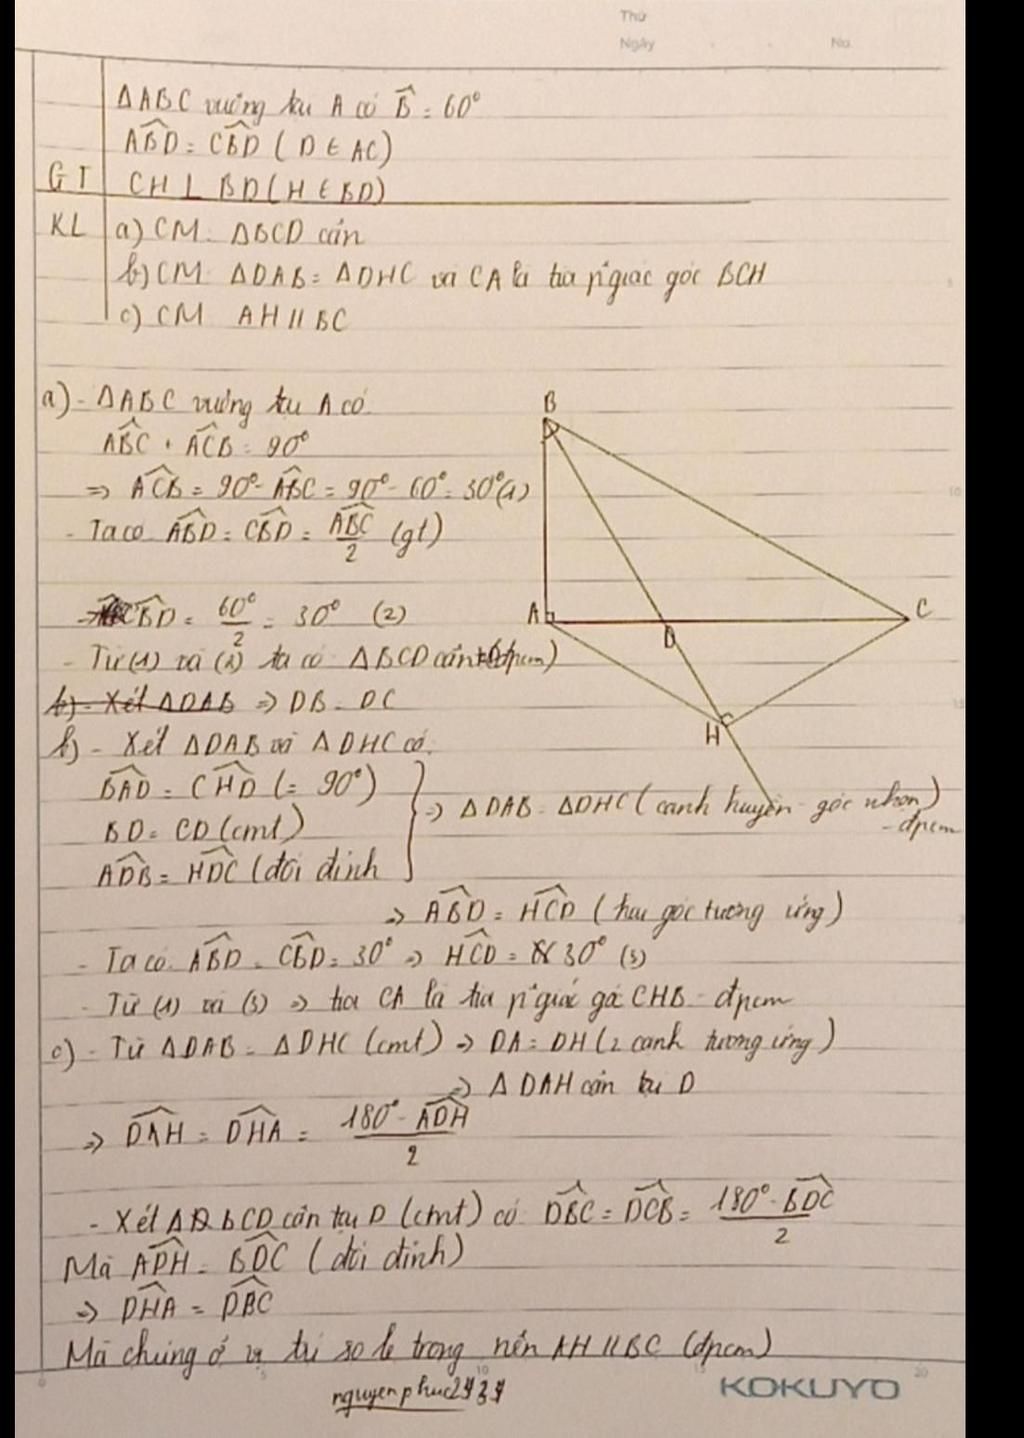 Thứ
Ngày . . No.
ΔABC vuông tại A có B̂ = 60°
ABD̂ = CBD̂ (D ∈ AC)
GT CH ⊥ BD (H ∈ BD)
KL a) CM. ΔBCD cân
b) CM ΔDAB = ΔDHC và CA là tia p'giác góc BCH
c) CM AH // BC
a) - ΔABC vuông tại A có
ABĈ + ACB̂ = 90°
=> ACB̂ = 90° - ABĈ = 90° - 60° = 30° (1)
- Ta có ABD̂ = CBD̂ = ABĈ/2 (gt)
=> CBD̂ = 60°/2 = 30° (2)
- Từ (1) và (2) ta có ΔBCD cân (đpcm)
b) - Xét ΔDAB => DB = DC
b) - Xét ΔDAB và ΔDHC có:
BAD̂ = CHD̂ (= 90°)
BD = CD (cmt)
ADB̂ = HDĈ (đối đỉnh
=> ΔDAB = ΔDHC (cạnh huyền - góc nhọn)
- đpcm
=> ABD̂ = HCD̂ (hai góc tương ứng)
- Ta có ABD̂ = CBD̂ = 30° => HCD̂ = 30° (3)
- Từ (1) và (3) => tia CA là tia p'giác gó CHB - đpcm
c) - Từ ΔDAB = ΔDHC (cmt) => DA = DH (2 cạnh tương ứng)
=> ΔDAH cân tại D
=> DAĤ = DHÂ = 180° - ADĤ/2
- Xét ΔBCD cân tại D (cmt) có DBĈ = DCB̂ = 180° - BDĈ/2
Mà ADĤ = BDĈ (đối đỉnh)
=> DHÂ = DBĈ
Mà chúng ở vị trí so le trong nên AH // BC (đpcm)
B
A
D
C
H
KOKUYO